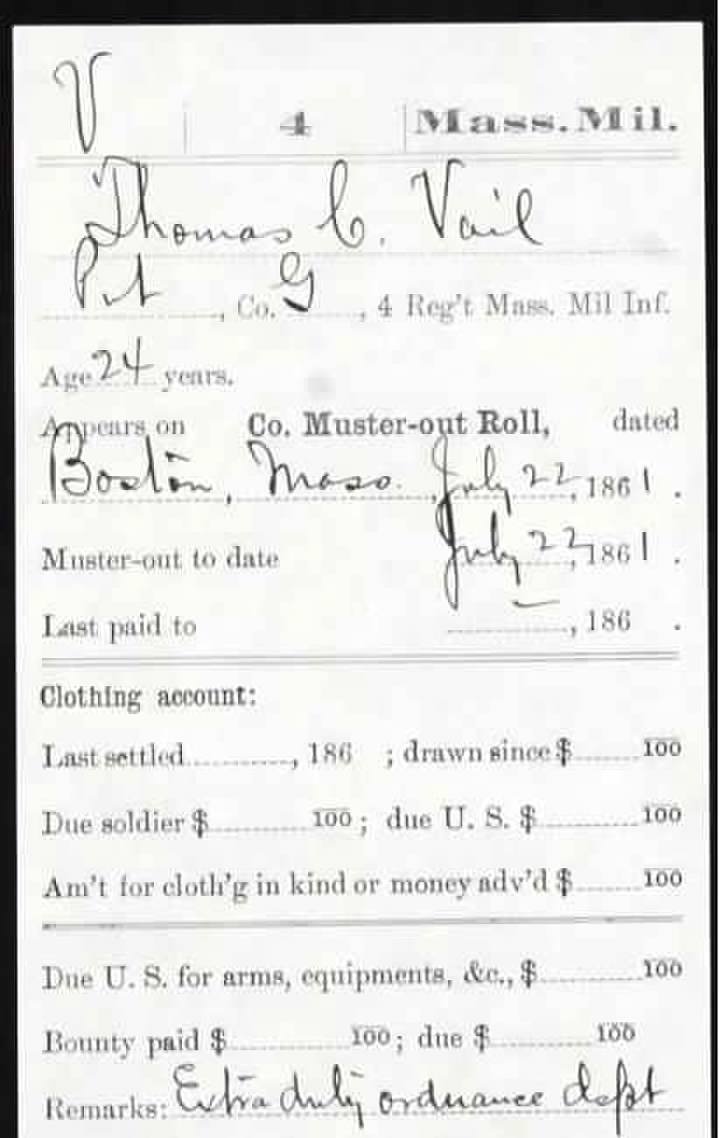 V 4 Mass. Mil.
Thomas C. Vail
Pvt, Co. G, 4 Reg't Mass. Mil Inf.
Age 24 years.
Appears on Co. Muster-out Roll, dated
Boston, Mass. July 22, 1861.
Muster-out to date July 22, 1861.
Last paid to —, 186 .
Clothing account:
Last settled............, 186 ; drawn since $........100
Due soldier $............100; due U. S. $............100
Am't for cloth'g in kind or money adv'd $........100
Due U. S. for arms, equipments, &c., $............100
Bounty paid $............100; due $............100
Remarks: Extra duty ordnance dept